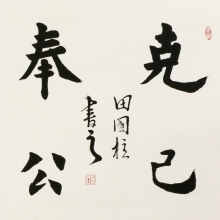 克己
奉公
田国柱
書之